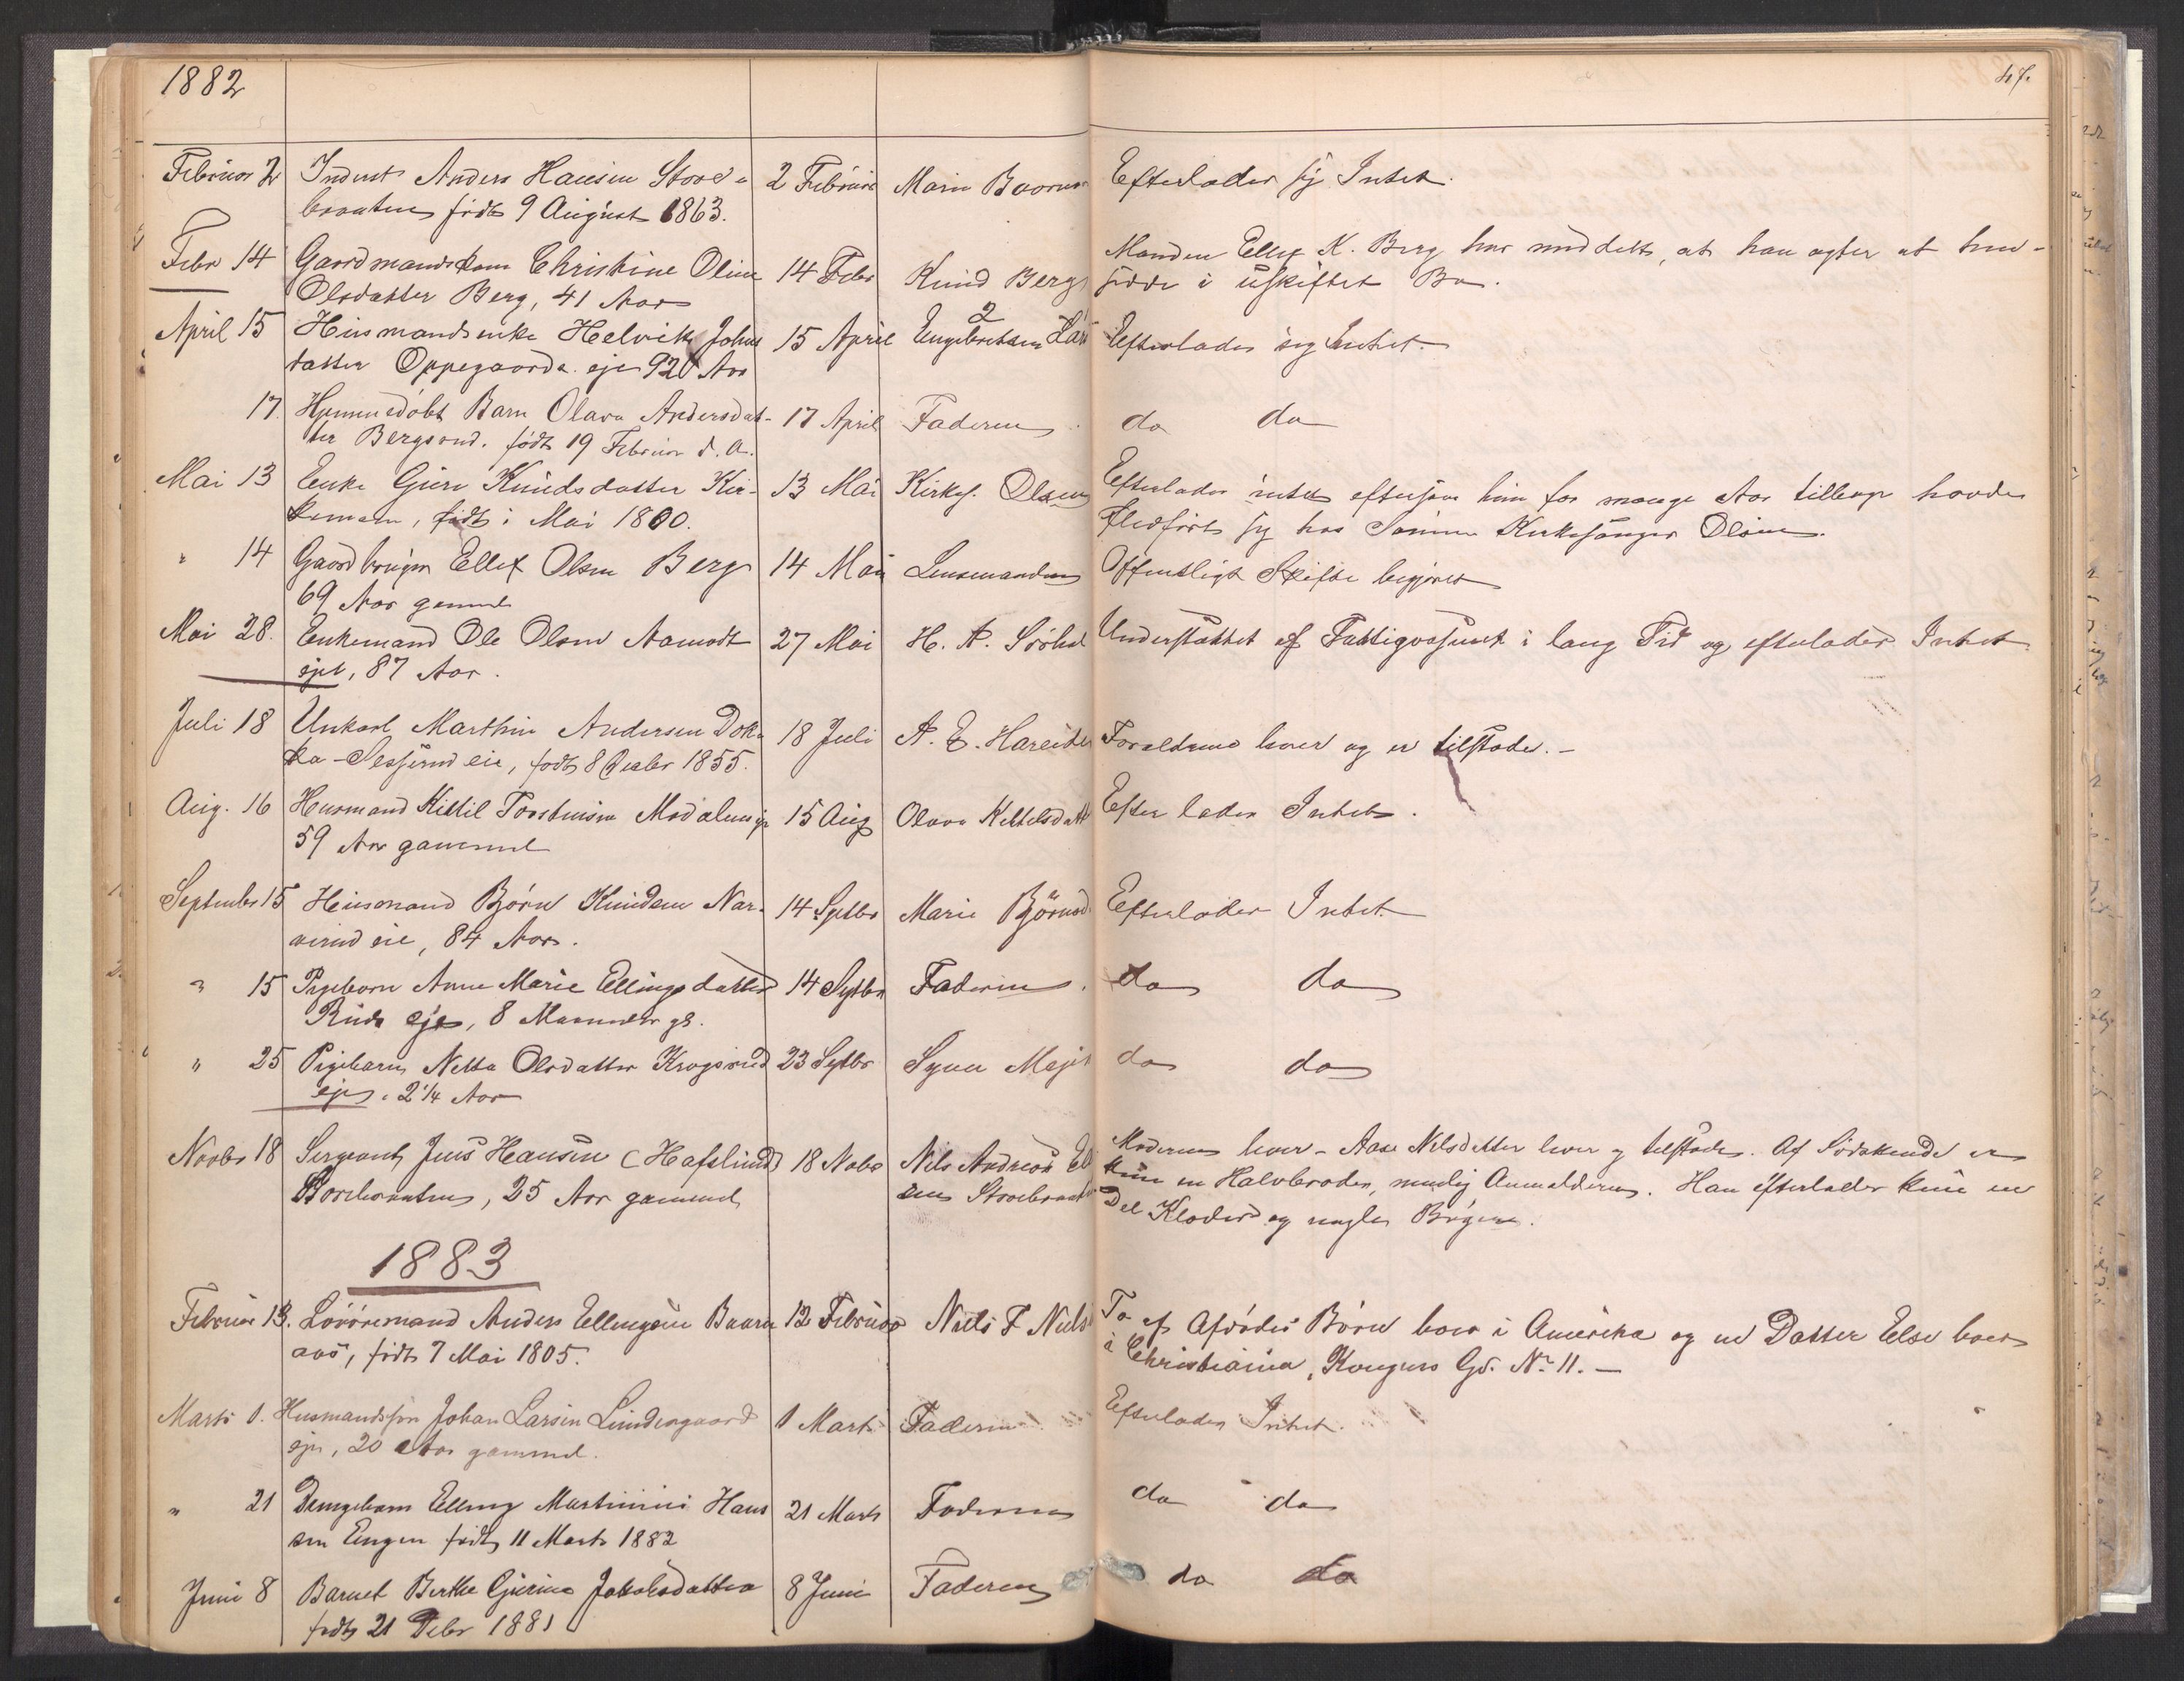 1882
47.
Februar 2 Inderst Anders Hansen Store- 2 Februar Marin Efterlader sig Intet.
braaten født 9 August 1863.
Febr 14 Gaardmandskone Christine Oline 14 Febr Knud Berg Manden Ellef K. Berg har meddelt, at han agter at hen-
Olsdatter Berg, 41 Aar sidde i uskiftet Bo.
2
April 15 Husmandsenke Helvik Johns 15 April Engebretsen Lar Efterlader sig Intet.
datter Oppegaards eje 92 Aar
17. Hjemmedøbt Barn Olava Andersdat- 17 April Faderen do do
ter Bergsrud. født 19 Februar d. A.
Mai 13 Enke Guri Knudsdatter Kir- 13 Mai Kirkes. Olsen Efterlader intet eftersom hun for mange Aar tilbage havde
født i Mai 1800. fledført sig hos Sønnen Kirkesanger Olsen.
" 14 Gaardbruger Ellef Olsen Berg 14 Mai Lensmanden Offentligt Skifte begjæret
69 Aar gammel
Mai 28. Enkemand Ole Olsen Aamodt 27 Mai H. A. Understøttet af Fattigvæsenet i lang Tid og efterlader Intet
eje, 87 Aar.
Juli 18 Unkarl Marthin Andersen Dok- 18 Juli A. E. Hareide Forældrene lever og er tilstede. -
ka - eie, født 8 Decbr 1855.
Aug. 16 Husmand Kittil Torstensen Modalens eje 15 Aug Olava Kittelsdatt Efterlader Intet.
59 Aar gammel
September 15 Husmand Bjørn Knudsen Nar- 14 Septbr Marie Björnsd. Efterlader Intet.
verud eie, 84 Aar.
" 15 Pigebarn Anne Marie Ellingsdatter 14 Septbr Faderen. do do
Ruds eje, 8 Maaneder gl.
" 25 Pigebarn Netta Olsdatter Krogsrud 23 Septbr do do
eje, 2 1/4 Aar
Novbr 18 Sergeant Jens Hansen (Hafslund) 18 Novbr Nils Andreas El Moderen lever - Aase Nilsdatter lever og tilstede. Af Södskende er
Storebraaten, 25 Aar gammel sen Storebraaten kun en Halvbroder, nemlig Anmelderen. Han efterlader kun en
Del Klæder og nogle Bøger.
1883
Februar 13. Anders Ellingsen Baaru 12 Februar Niels F Niels To af Afdødes Börn boer i Amerika og en Datter Else boer
aas, født 7 Mai 1805. i Christiania, Kongens Gd. No 11. -
Marts 1. Husmandssøn Johan Larsen Lundergaard 1 Marts Faderen Efterlader Intet.
eje, 20 Aar gammel.
" 21 Drengebarn Elling Martinius Hans 21 Marts Faderen do do
sen Engen født 11 Marts 1882
Juni 8 Barnet Berthe Gurine Jakobsdatter 8 Juni Faderen do do
født 21 Debr 1881